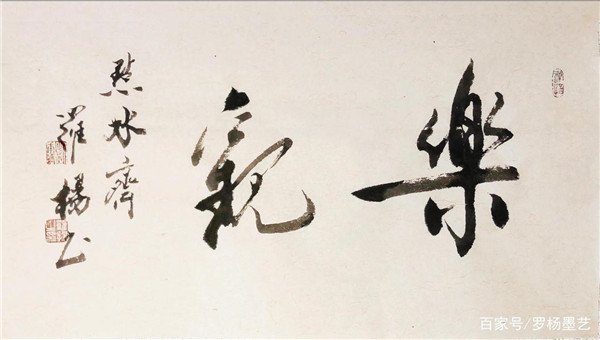 樂觀
點水齋
羅楊书
百家号/罗杨墨艺